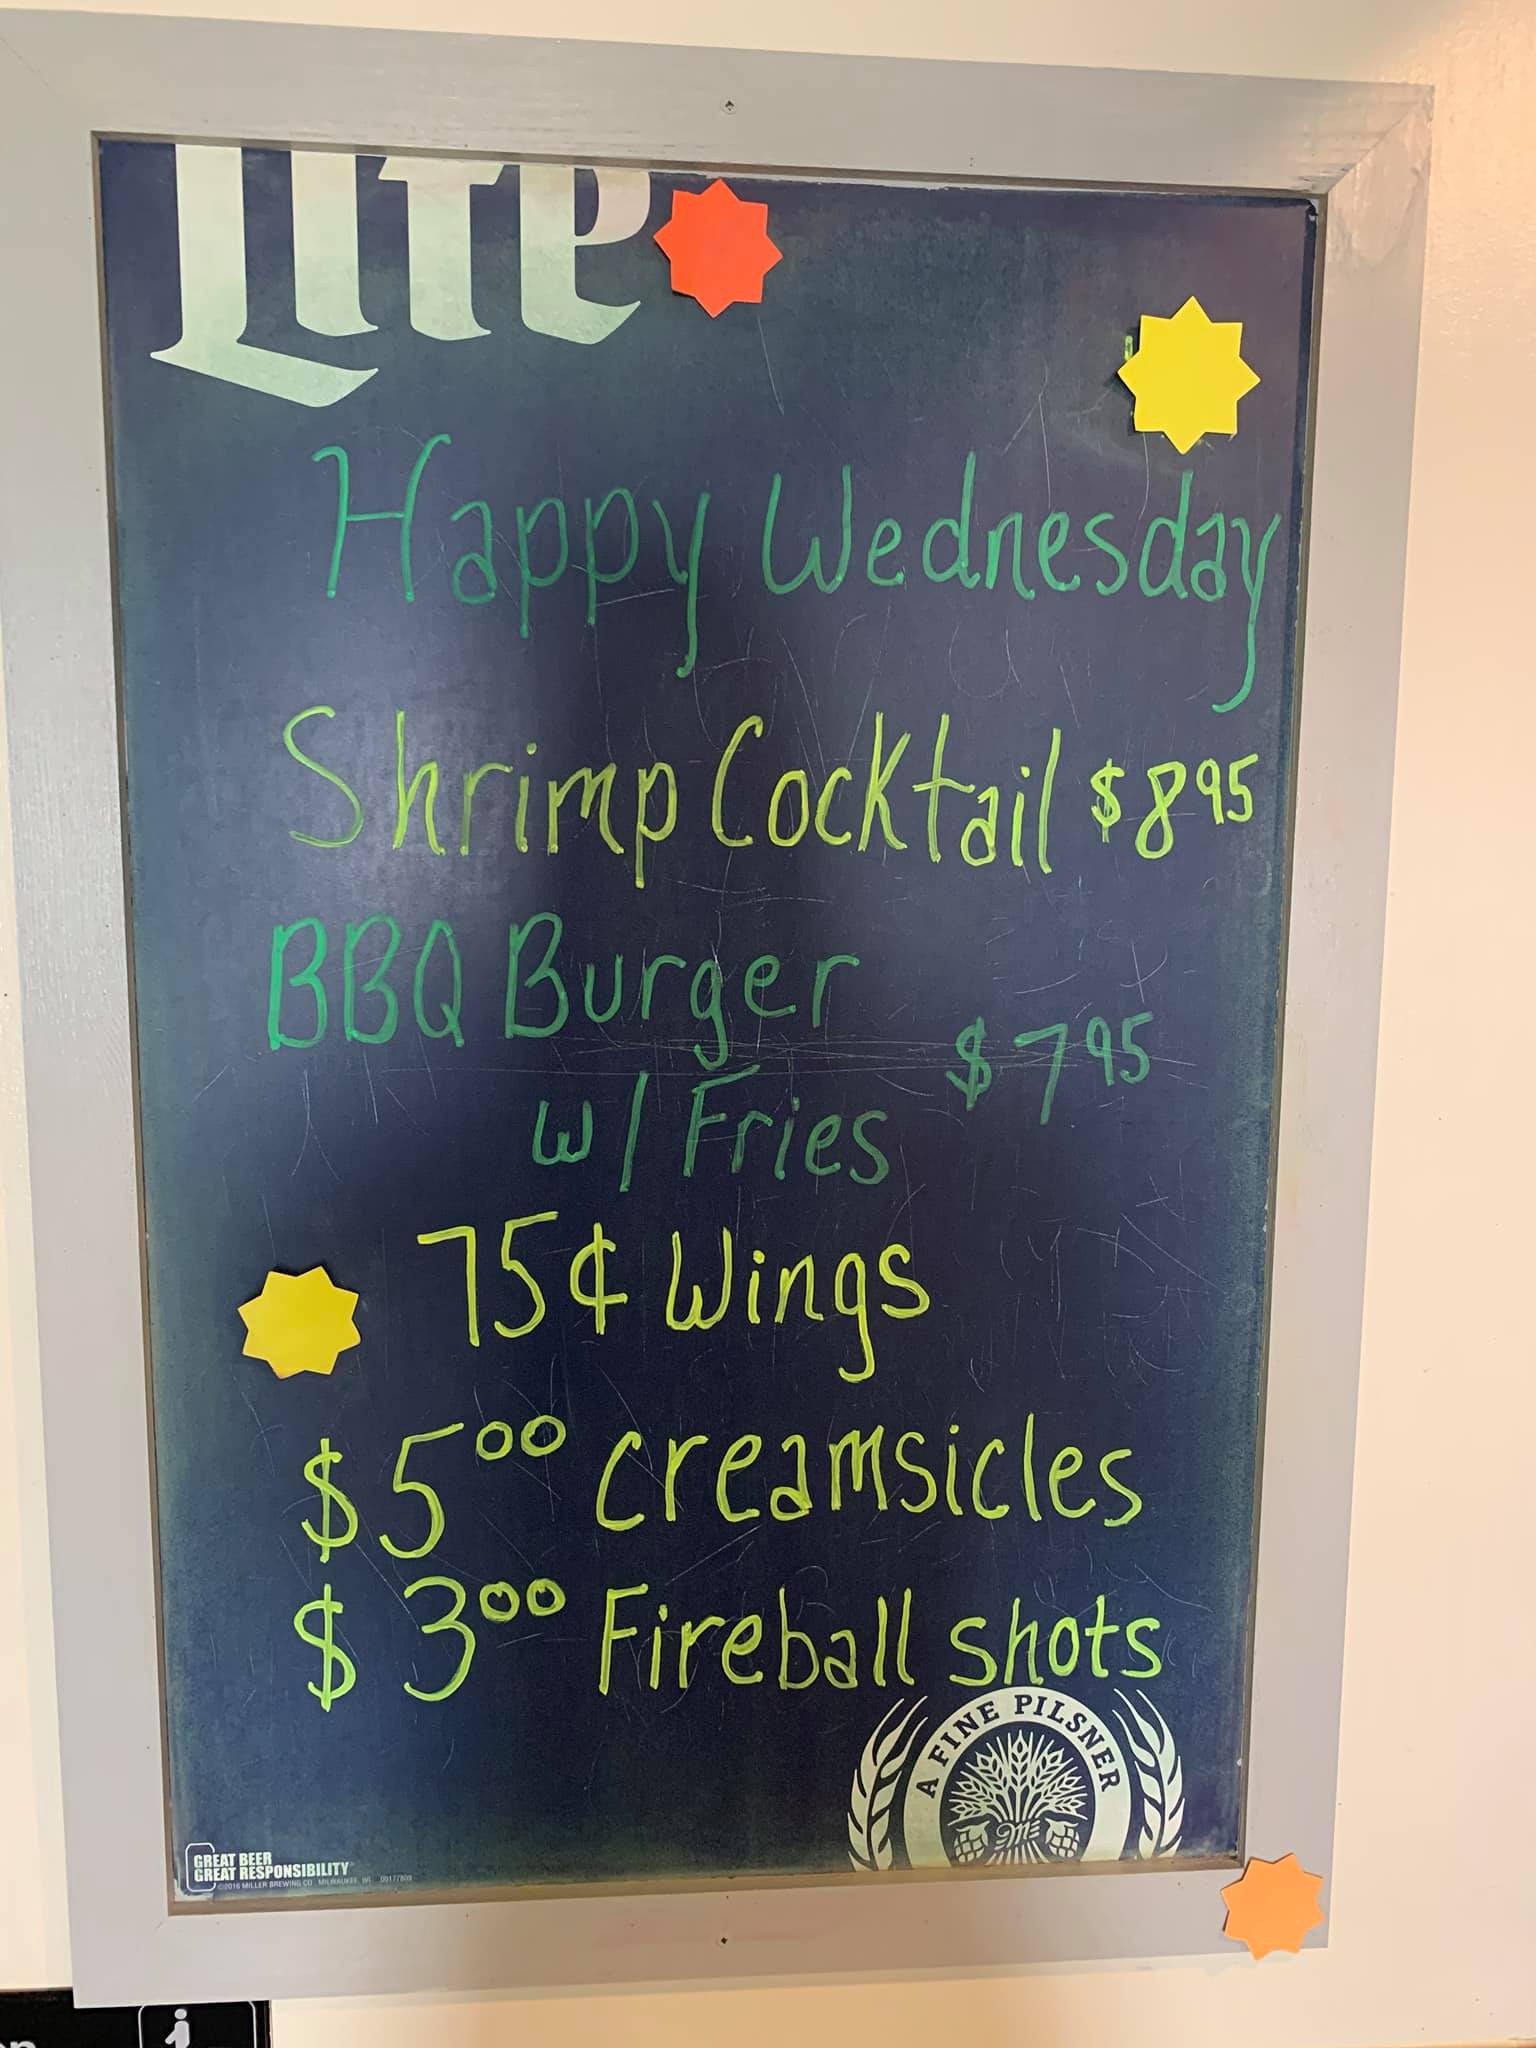 Lite
Happy Wednesday
Shrimp Cocktail $8 95
BBQ Burger
w/ Fries $7 95
75¢ Wings
$5 00 creamsicles
$3 00 Fireball shots
A FINE PILSNER
GREAT BEER
GREAT RESPONSIBILITY
©2016 MILLER BREWING CO. MILWAUKEE, WI